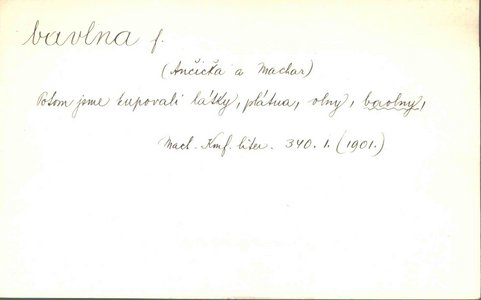 bavlna f.
(Ančička a Machar)
Potom jsme kupovali látky, plátna, vlny, bavlny,
Mach. Konf. liter. 340. 1. (1901.)